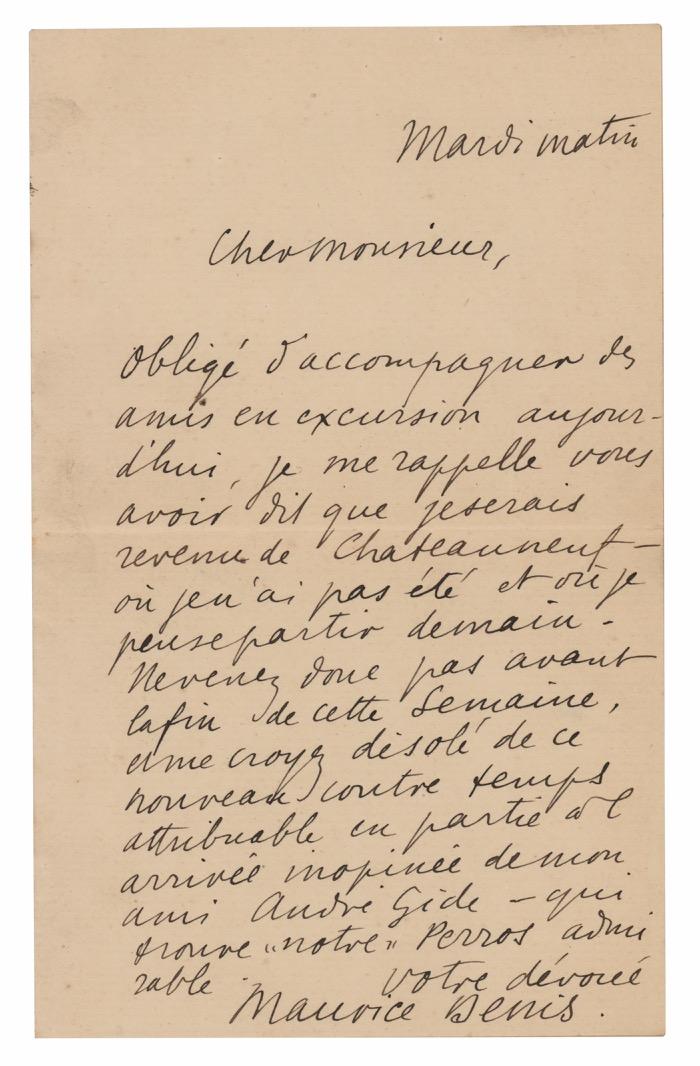 Mardi matin
Cher Monsieur,
Obligé d'accompagner des
amis en excursion aujour-
d'hui, je me rappelle vous
avoir dit que je serais
revenu de Chateauneuf –
où je n'ai pas été et où je
pense partir demain -
Ne venez donc pas avant
la fin de cette semaine,
et me croyez désolé de ce
nouveau contre temps
attribuable en partie à l
arrivée inopinée de mon
ami André Gide – qui
trouve "notre" Perros admi
rable. votre dévoué
Maurice Denis.